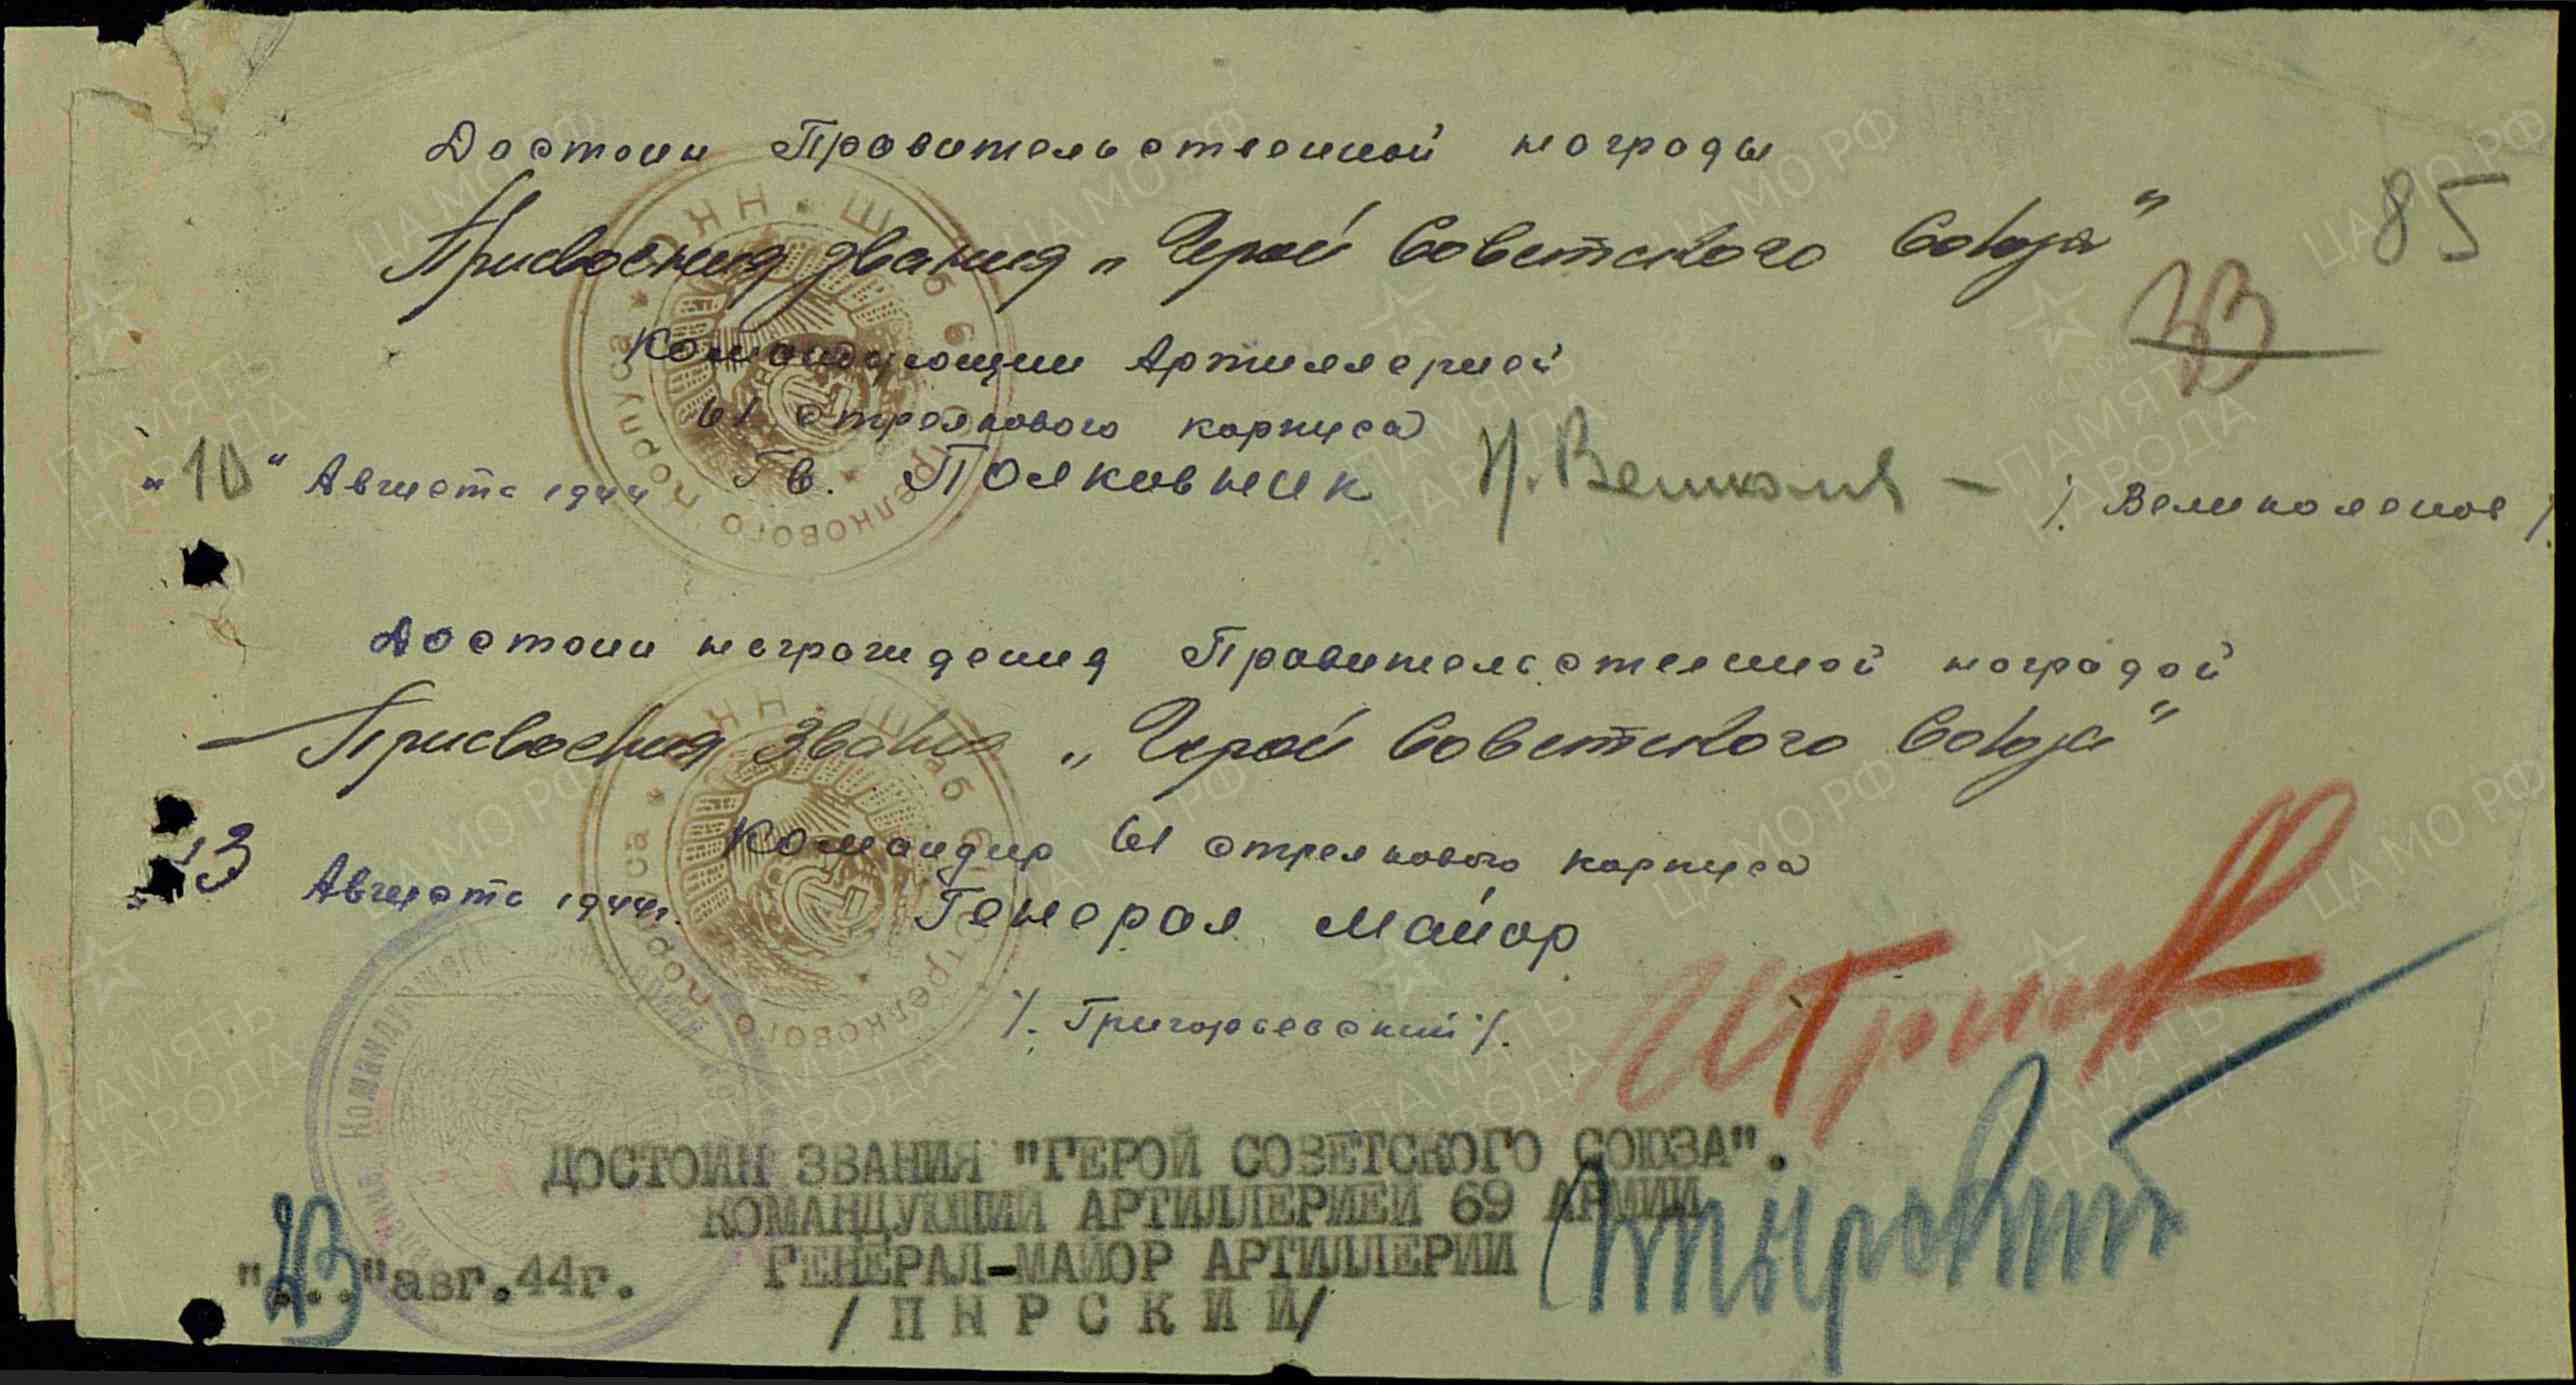 85
Достоин Правительственной награды
Присвоения звания „Герой Советского Союза"
33
Командующий Артиллерией
61 стрелкового корпуса
"10" Августа 1944 Гв. Полковник /. Великолепов /.
Достоин награждения Правительственной наградой
Присвоения звания „Герой Советского Союза"
Командир 61 стрелкового корпуса
"13 Августа 1944г. Генерал Майор
/. Григорьевский /.
ДОСТОИН ЗВАНИЯ "ГЕРОЙ СОВЕТСКОГО СОЮЗА".
КОМАНДУЮЩИЙ АРТИЛЛЕРИЕЙ 69 АРМИИ
ГЕНЕРАЛ-МАЙОР АРТИЛЛЕРИИ
"23"авг.44г.
/ПЫРСКИЙ/